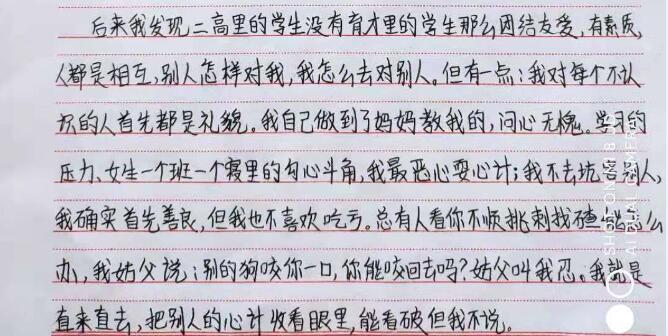 后来我发现二高里的学生没有育才里的学生那么团结友爱,有素质,
人都是相互,别人怎样对我,我怎么去对别人。但有一点:我对每个不认
识的人首先都是礼貌。我自己做到了妈妈教我的,问心无愧。学习的
压力、女生一个班一个寝里的勾心斗角,我最恶心耍心计;我不去坑害别人,
我确实首先善良,但我也不喜欢吃亏。总有人看你不顺挑刺找碴,能怎么
办,我姑父说:别的狗咬你一口,你能咬回去吗?姑父叫我忍。我就是
直来直去,把别人的心计收看眼里,能看破但我不说。
SHOT ON MI 8
AI DUAL CAMERA